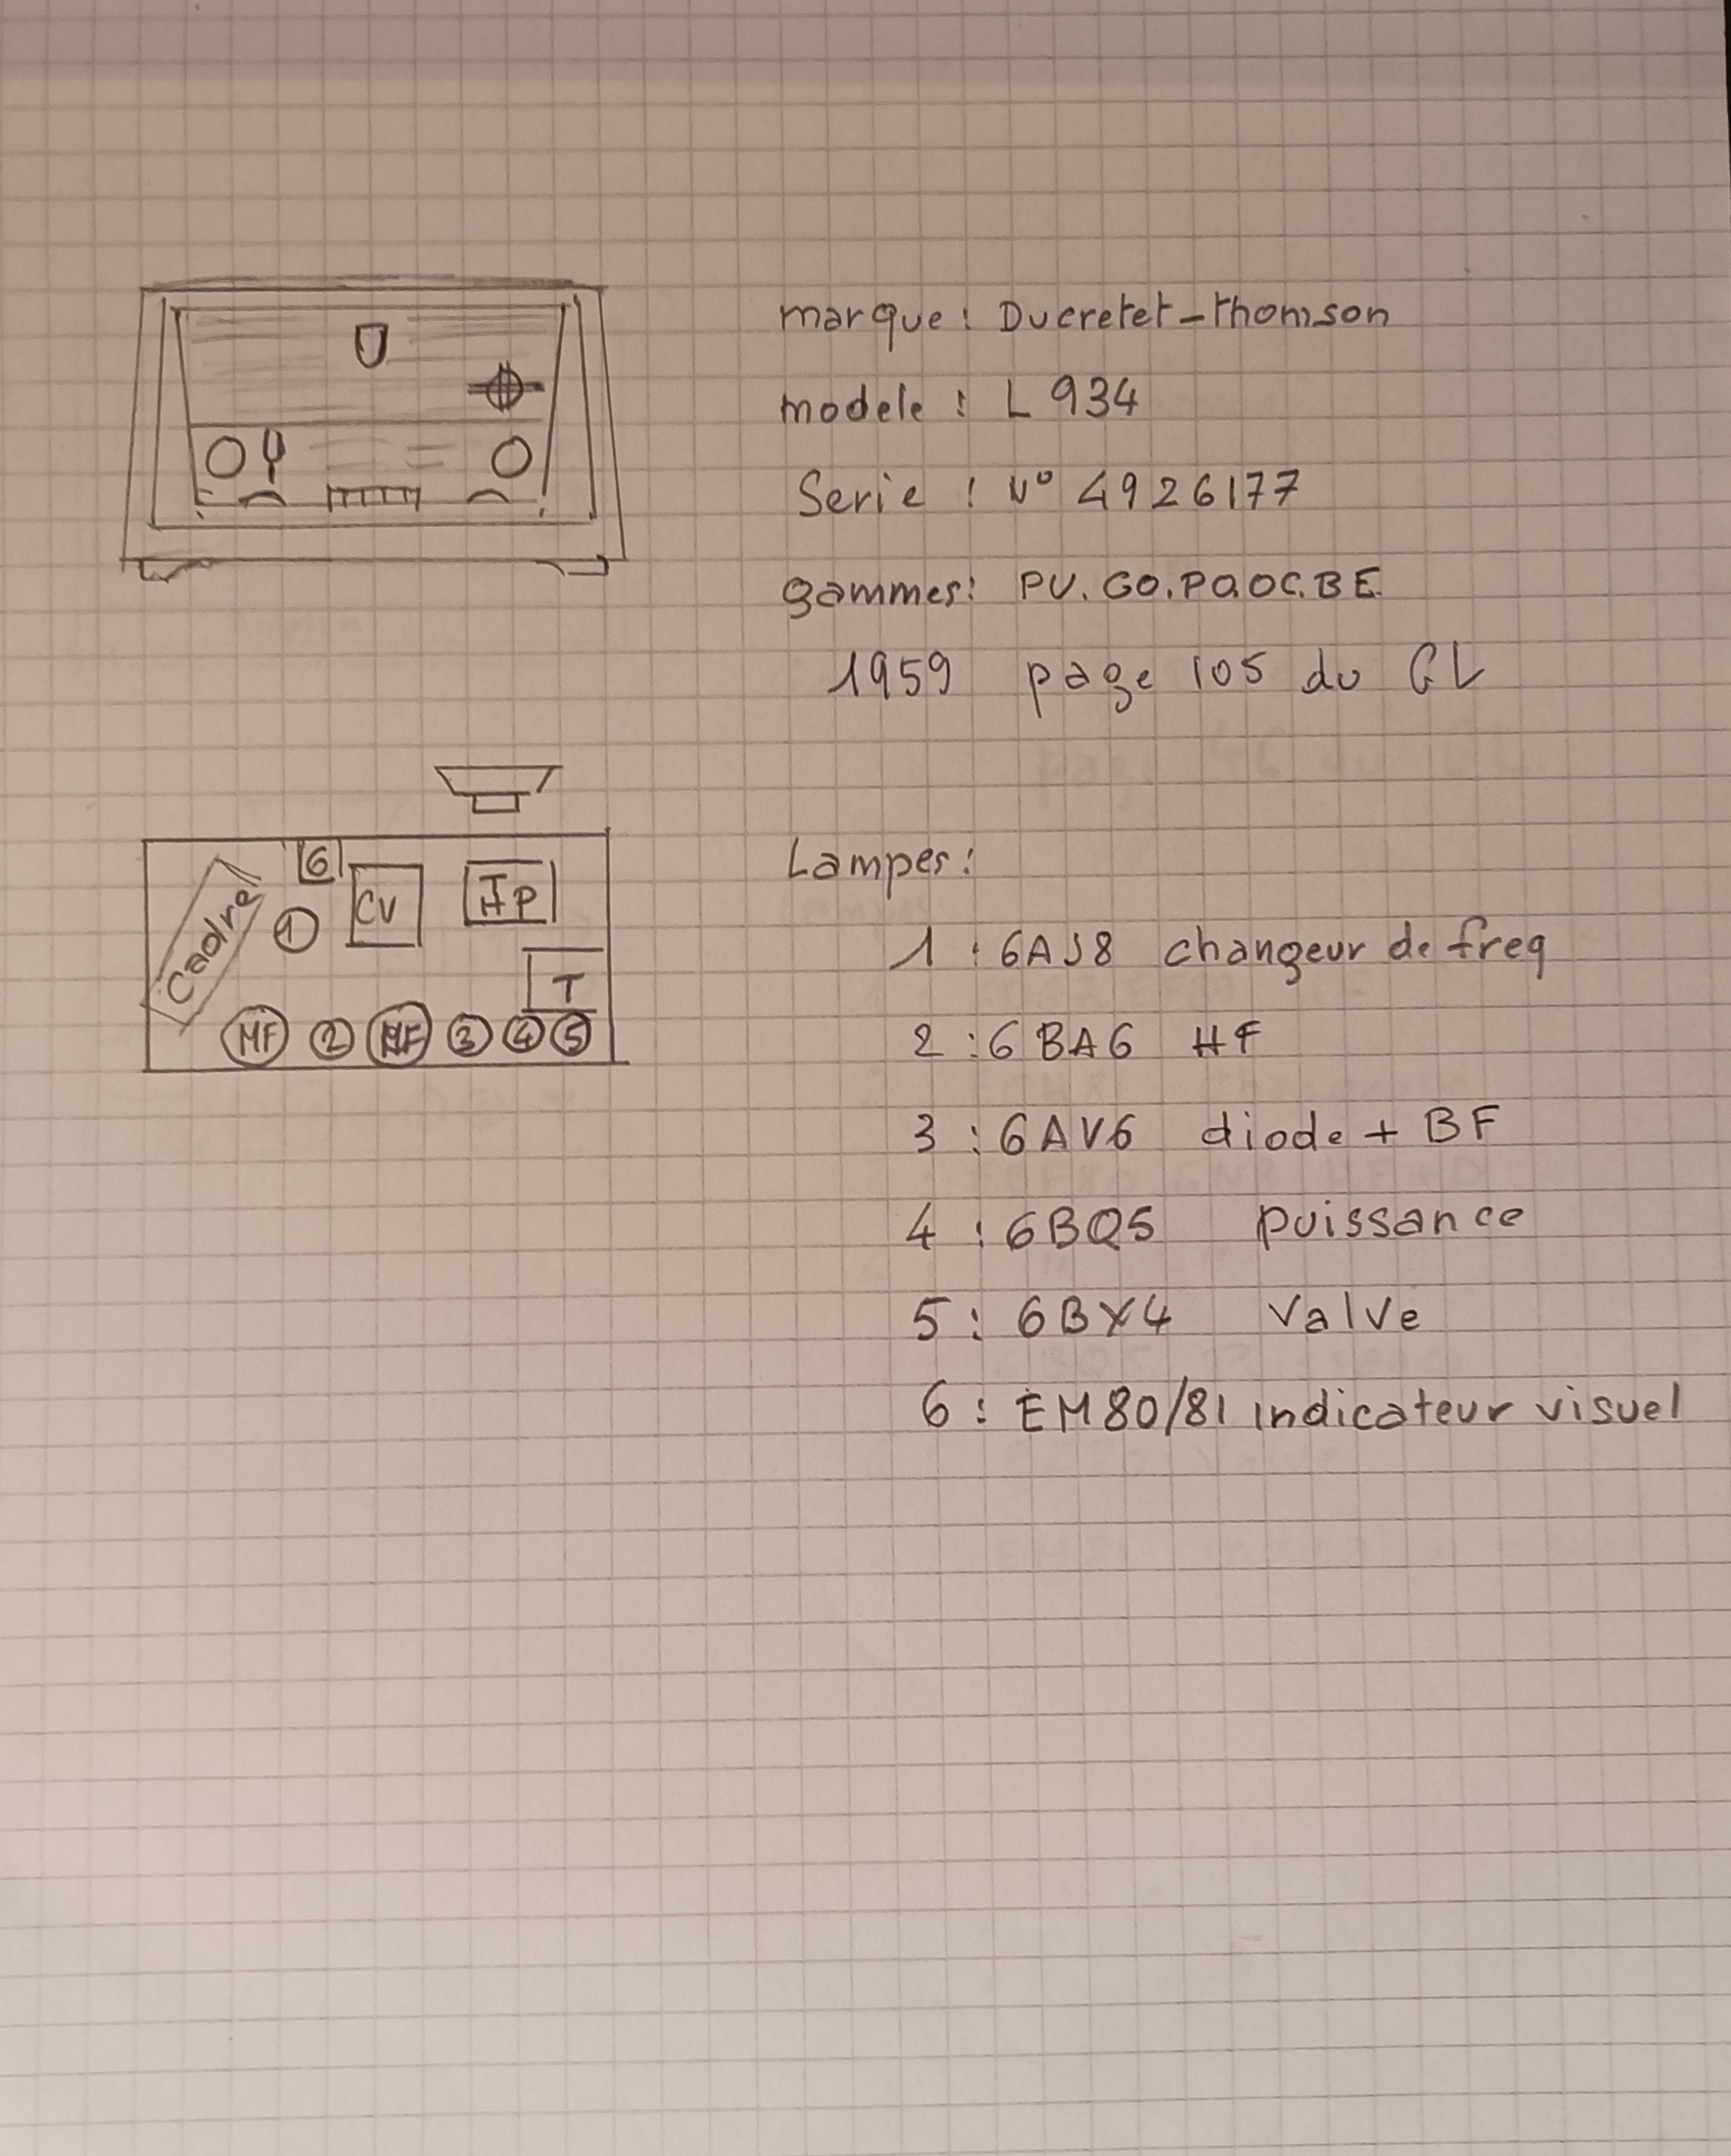 marque : Ducretet-thomson
modele : L 934
Serie : N° 4926177
gammes: PU.GO.PO.OC.BE.
1959 page 105 du GL
6
Cadre
1
CV
HP
T
MF 2 MF 3 4 5
Lampes:
1 : 6AJ8 changeur de freq
2 : 6BA6 HF
3 : 6AV6 diode + BF
4 : 6BQ5 puissance
5 : 6BX4 Valve
6 : EM80/81 indicateur visuel